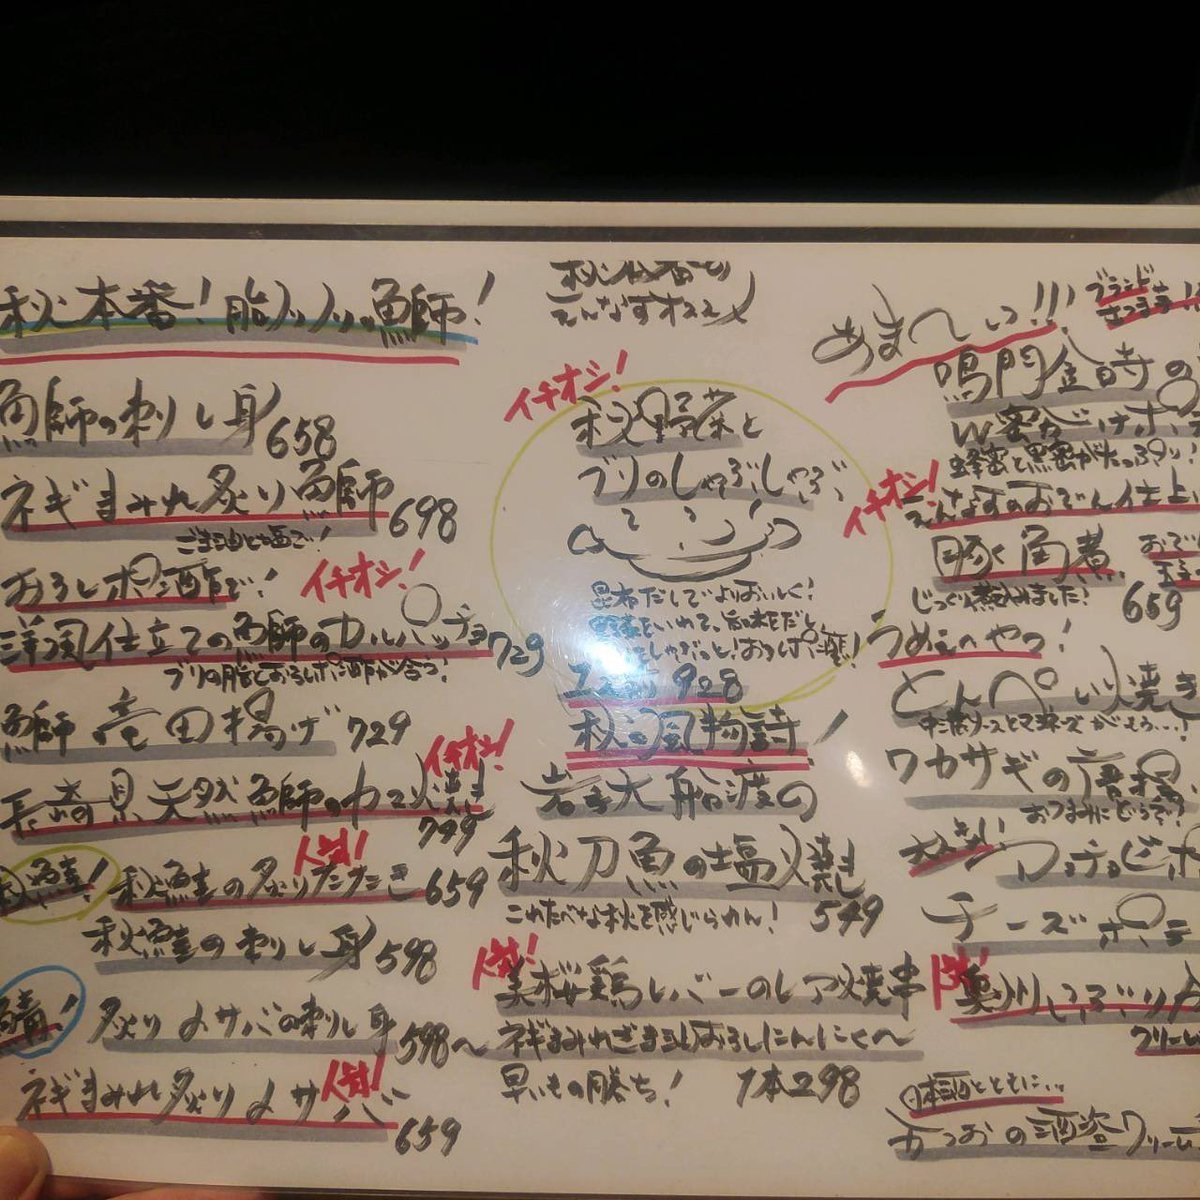 秋本番！脂ノリノリの鰤！
鰤の刺し身 658
ネギまみれ炙り鰤 698
ごま油と塩で！
おろしポン酢で！ イチオシ！
洋風仕立ての鰤のカルパッチョ 729
ブリの脂とおろしポン酢が合う！
鰤竜田揚げ 729
イチオシ！
長崎県天然鰤のカマ焼き 799
人気！
秋鮭！ 秋鮭の炙りたたき 659
秋鮭の刺し身 598
鯖！ 炙り〆サバの刺し身 598
人気！
ネギまみれ炙り〆サバ 659
秋本番の
こんなオススメ
イチオシ！
秋野菜と
ブリのしゃぶしゃぶ
昆布だしでよりおいしく！
928
秋の風物詩！
岩手大船渡の
秋刀魚の塩焼き 549
これたべな秋を感じられん！
人気！
美桜鶏レバーのレア焼串
〜ネギまみれごま油おろしにんにく〜
早いもの勝ち！ 1本298
あま〜いっ!!!
ブランド
さつま
鳴門金時の
W蜜がけポ
蜂蜜と黒蜜がたっぷり！
イチオシ！
こんなすのおでん仕上
豚く角煮
おでん
玉子
じっくり煮込みました！ 659
うめぇへやつ！
とんぺい焼き
ワカサギの唐揚
おつまみにどうぞ？
大きい
チーズポテ
人気！
クリーム
日本酒とともに…
かつおの酒盗クリーム